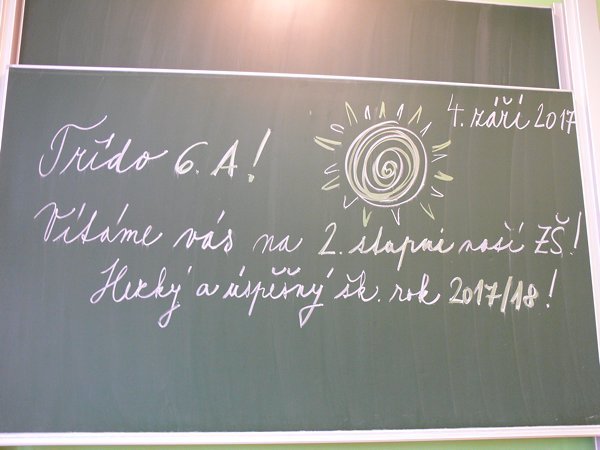 4. září 2017
Třído 6. A!
Vítáme vás na 2. stupni naší ZŠ!
Hezký a úspěšný šk. rok 2017/18!